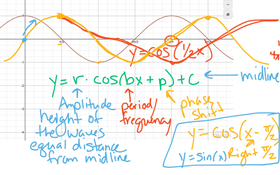 y=cos(1/2x)
y = r · cos(bx+p)+C
midline
Amplitude
height of
the waves
equal distance
from midline
period/
frequency
phase
shift
y=cos(x-π/2)
y=sin(x) Right π/2